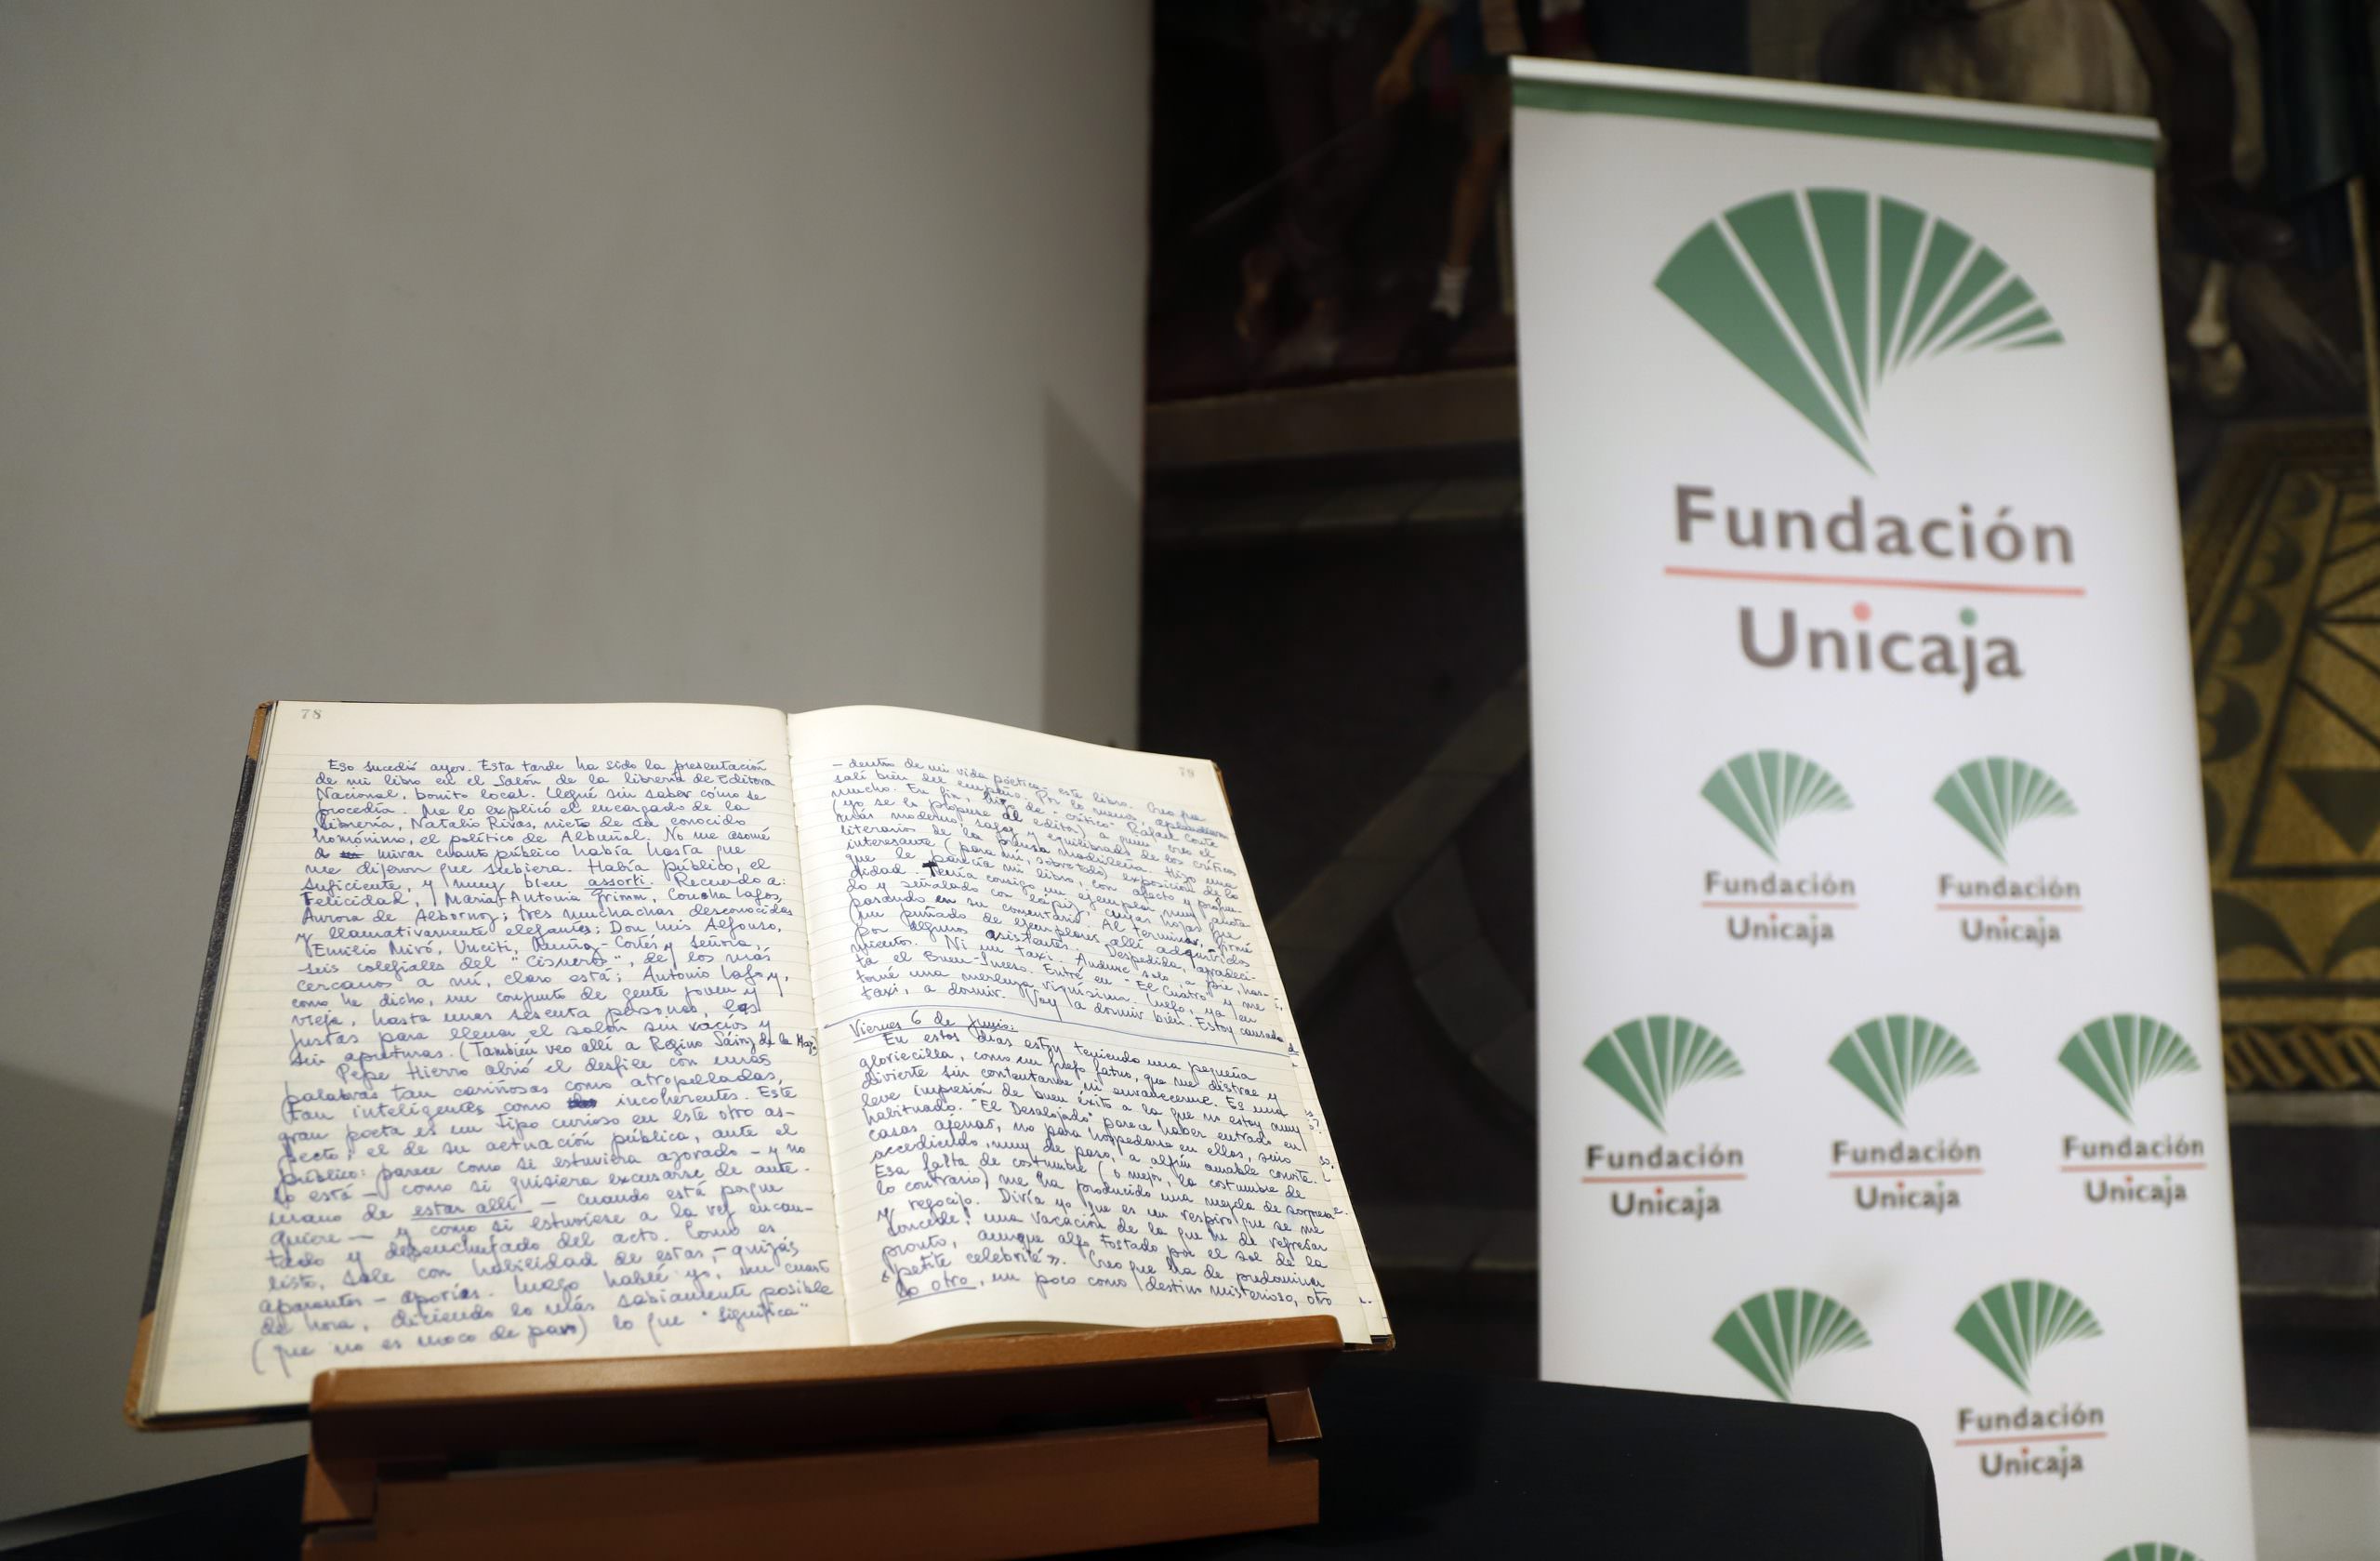 78
Eso sucedió ayer. Esta tarde ha sido la presentación
de mi libro en el salón de la librería de Editora
Nacional, bonito local. Llegué sin saber cómo se
procedía. Me lo explicó el encargado de la
librería, Natalio Rivas, nieto de su conocido
homónimo, el político de Albuñol. No me asomé
a mirar cuanto público había hasta que
me dijeron que subiera. Había público, el
suficiente, y muy bien assorti. Recuerdo a:
Felicidad, María Antonia Grimm, Concha Lagos,
Aurora de Albornoz; tres muchachas desconocidas
y llamativamente elegantes; Don Luis Alfonso,
Emilio Miró, Unciti, Muñoz-Cortés y señora,
seis colegiales del "Cisneros", de los más
cercanos a mí, claro está; Antonio Lago y,
como he dicho, un conjunto de gente joven y
vieja, hasta unas sesenta personas, las
justas para llenar el salón sin vacíos y
sin apreturas. (También veo allí a Regino Sáinz de la Maza)
Pepe Hierro abrió el desfile con unas
palabras tan cariñosas como atropelladas,
tan inteligentes como incoherentes. Este
gran poeta es un tipo curioso en este otro as-
pecto, el de su actuación pública, ante el
público: parece como si estuviera azorado – y no
lo está – como si quisiera excusarse de ante-
mano de estar allí – cuando está porque
quiere – y como si estuviese a la vez encan-
tado y desenchufado del acto. Como es
listo, sale con habilidad de estas, – quizás
aparentes – aporías. Luego hablé yo, un cuarto
de hora, diciendo lo más sabiamente posible
(que no es moco de pavo) lo que "significa"
79
– dentro de mi vida poética – este libro. Creo que
salí bien del empeño. Por lo menos, aplaudieron
mucho. En fin, hizo de "crítico" Rafael Conte
(yo se lo propuse al editor) a quien creo el
más moderno, sagaz y equilibrado de los críticos
literarios de la prensa madrileña. Hizo una
interesante (para mí, sobre todo) exposición de lo
que le parecía mi libro, con afecto y profun-
didad. Tenía consigo un ejemplar muy anota-
do y señalado con lápiz, cuyas hojas fue
pasando en su comentario. Al terminar, firmé
un puñado de ejemplares allí adquiridos
por algunos asistentes. Despedida, agradeci-
mientos. Ni un taxi. Anduve solo, a pie, has-
ta el Buen-Suceso. Entré en "El Cuatro" y me
tomé una merluza riquísima. Luego, ya en
taxi, a dormir. Voy a dormir bien. Estoy cansado
Viernes 6 de Junio:
En estos días estoy teniendo una pequeña
gloriecilla, como un fuego fatuo, que me distrae y
divierte sin contentarme ni envanecerme. Es una
leve impresión de buen éxito a la que no estoy muy
habituado. "El Desalojado" parece haber entrado en
casas ajenas, no para hospedarse en ellas, sino
accediendo, muy de paso, a algún amable convite.
Esa falta de costumbre (o mejor, la costumbre de
lo contrario) me ha producido una mezcla de sorpresa
y regocijo. Diría yo que es un respiro que se me
concede; una vacación de la que he de regresar
pronto, aunque algo tostado por el sol de la
«petite celebrité». Creo que ha de predominar
lo otro, un poco como destino misterioso, otro
Fundación
Unicaja
Fundación
Unicaja
Fundación
Unicaja
Fundación
Unicaja
Fundación
Unicaja
Fundación
Unicaja
Fundación
Unicaja